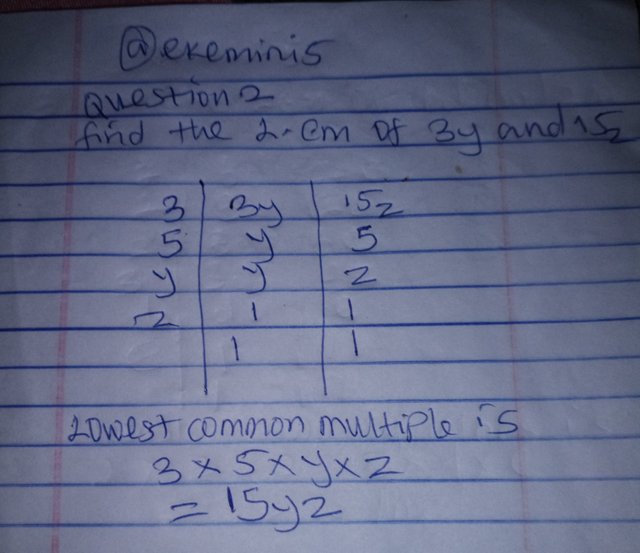 @ekeminis
Question 2
find the L.cm of 3y and 15z
3 3y 15z
5 y 5
y y z
z 1 1
1 1
Lowest common multiple is
3 × 5 × y × z
= 15yz